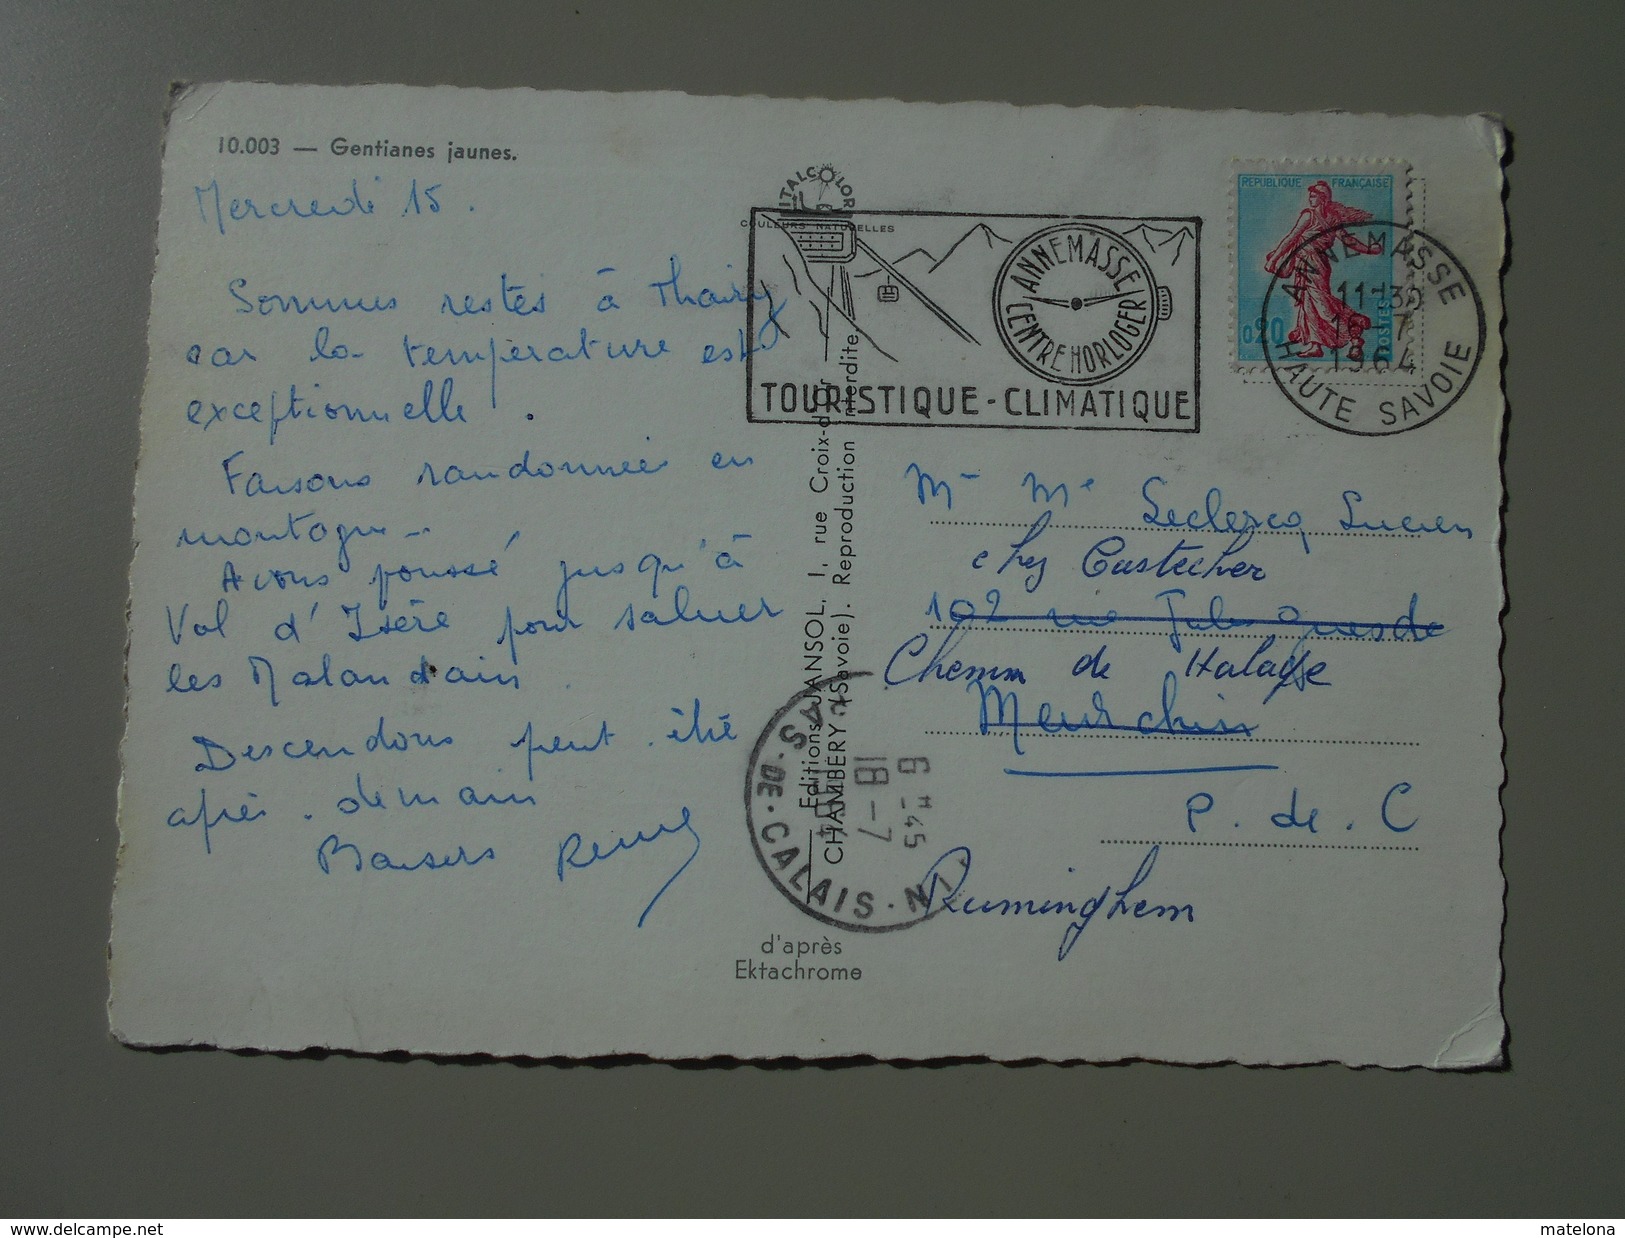 10.003 — Gentianes jaunes.
Mercredi 15.
Sommes restés à Thairy
car la température est
exceptionnelle.
Faisons randonnées en
montagne -
Avons poussé jusqu'à
Val d'Isère pour saluer
les Malandain.
Descendons peut être
après-demain
Baisers
ITALCOLOR
COULEURS NATURELLES
ANNEMASSE
CENTRE HORLOGER
TOURISTIQUE - CLIMATIQUE
REPUBLIQUE FRANÇAISE
0.20
POSTES
ANNEMASSE
11H30
16-7
1964
HAUTE SAVOIE
Editions JANSOL, 1, rue Croix-d'Or —
CHAMBÉRY (Savoie). Reproduction interdite
Mr Me Leclercq Lucien
chez Castecher
102 rue Jules Guesde
Chemin de
Meurchin
P. de. C
Ruminghem
6H45
18-7
PAS-DE-CALAIS-N1
d'après
Ektachrome
www.delcampe.net
matelona